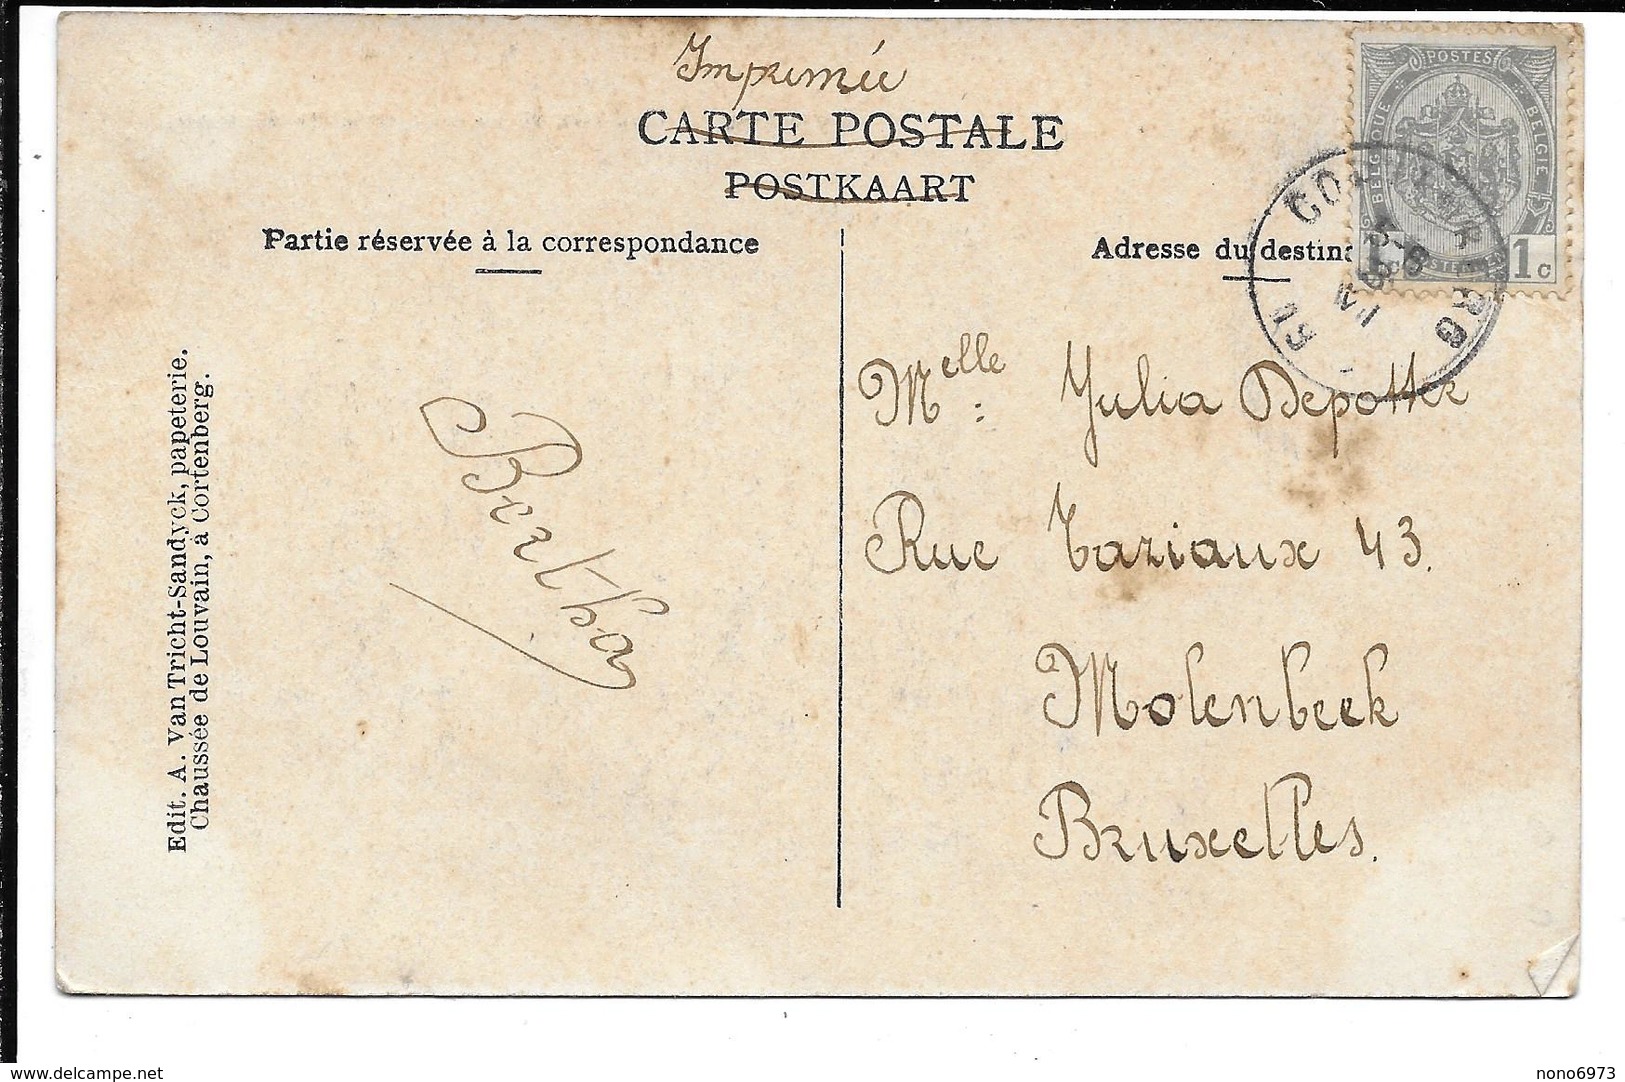 Imprimée
CARTE POSTALE
POSTKAART
Partie réservée à la correspondance
Adresse du destina
POSTES
BELGIQUE
BELGIE
1c
Melle : Yulia Depotter
Rue Tariaux 43.
Molenbeek
Bruxelles.
Bertha
Edit. A. Van Tricht-Sandyck, papeterie.
Chaussée de Louvain, à Cortenberg.
www.delcampe.net
nono6973